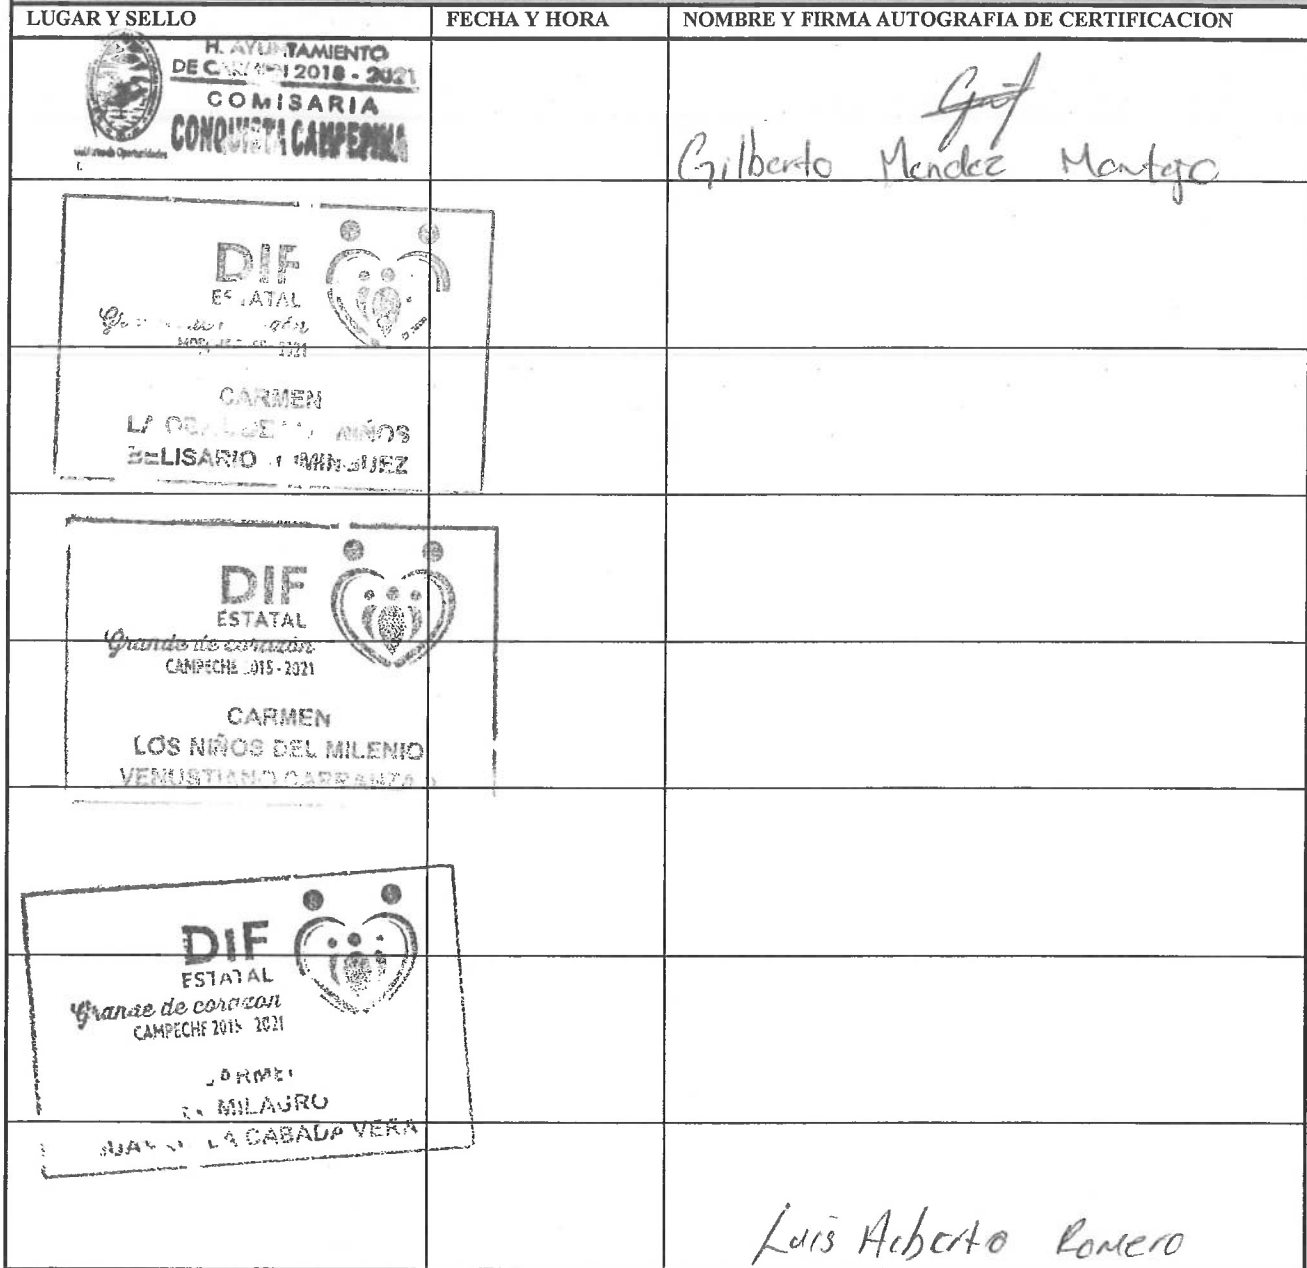 LUGAR Y SELLO
FECHA Y HORA
NOMBRE Y FIRMA AUTOGRAFIA DE CERTIFICACION
H. AYUNTAMIENTO
DE CARMEN 2018 - 2021
COMISARIA
CONQUISTA CAMPESINA
Gilberto Mendez Montejo
DIF
ESTATAL
2021
CARMEN
NIÑOS
BELISARIO DOMINGUEZ
DIF
ESTATAL
Grande de corazón
CAMPECHE 2015 - 2021
CARMEN
LOS NIÑOS DEL MILENIO
VENUSTIANO CARRANZA
DIF
ESTATAL
Grande de corazon
CAMPECHE 2015 2021
MILAGRO
LA CABADA VERA
Luis Alberto Romero